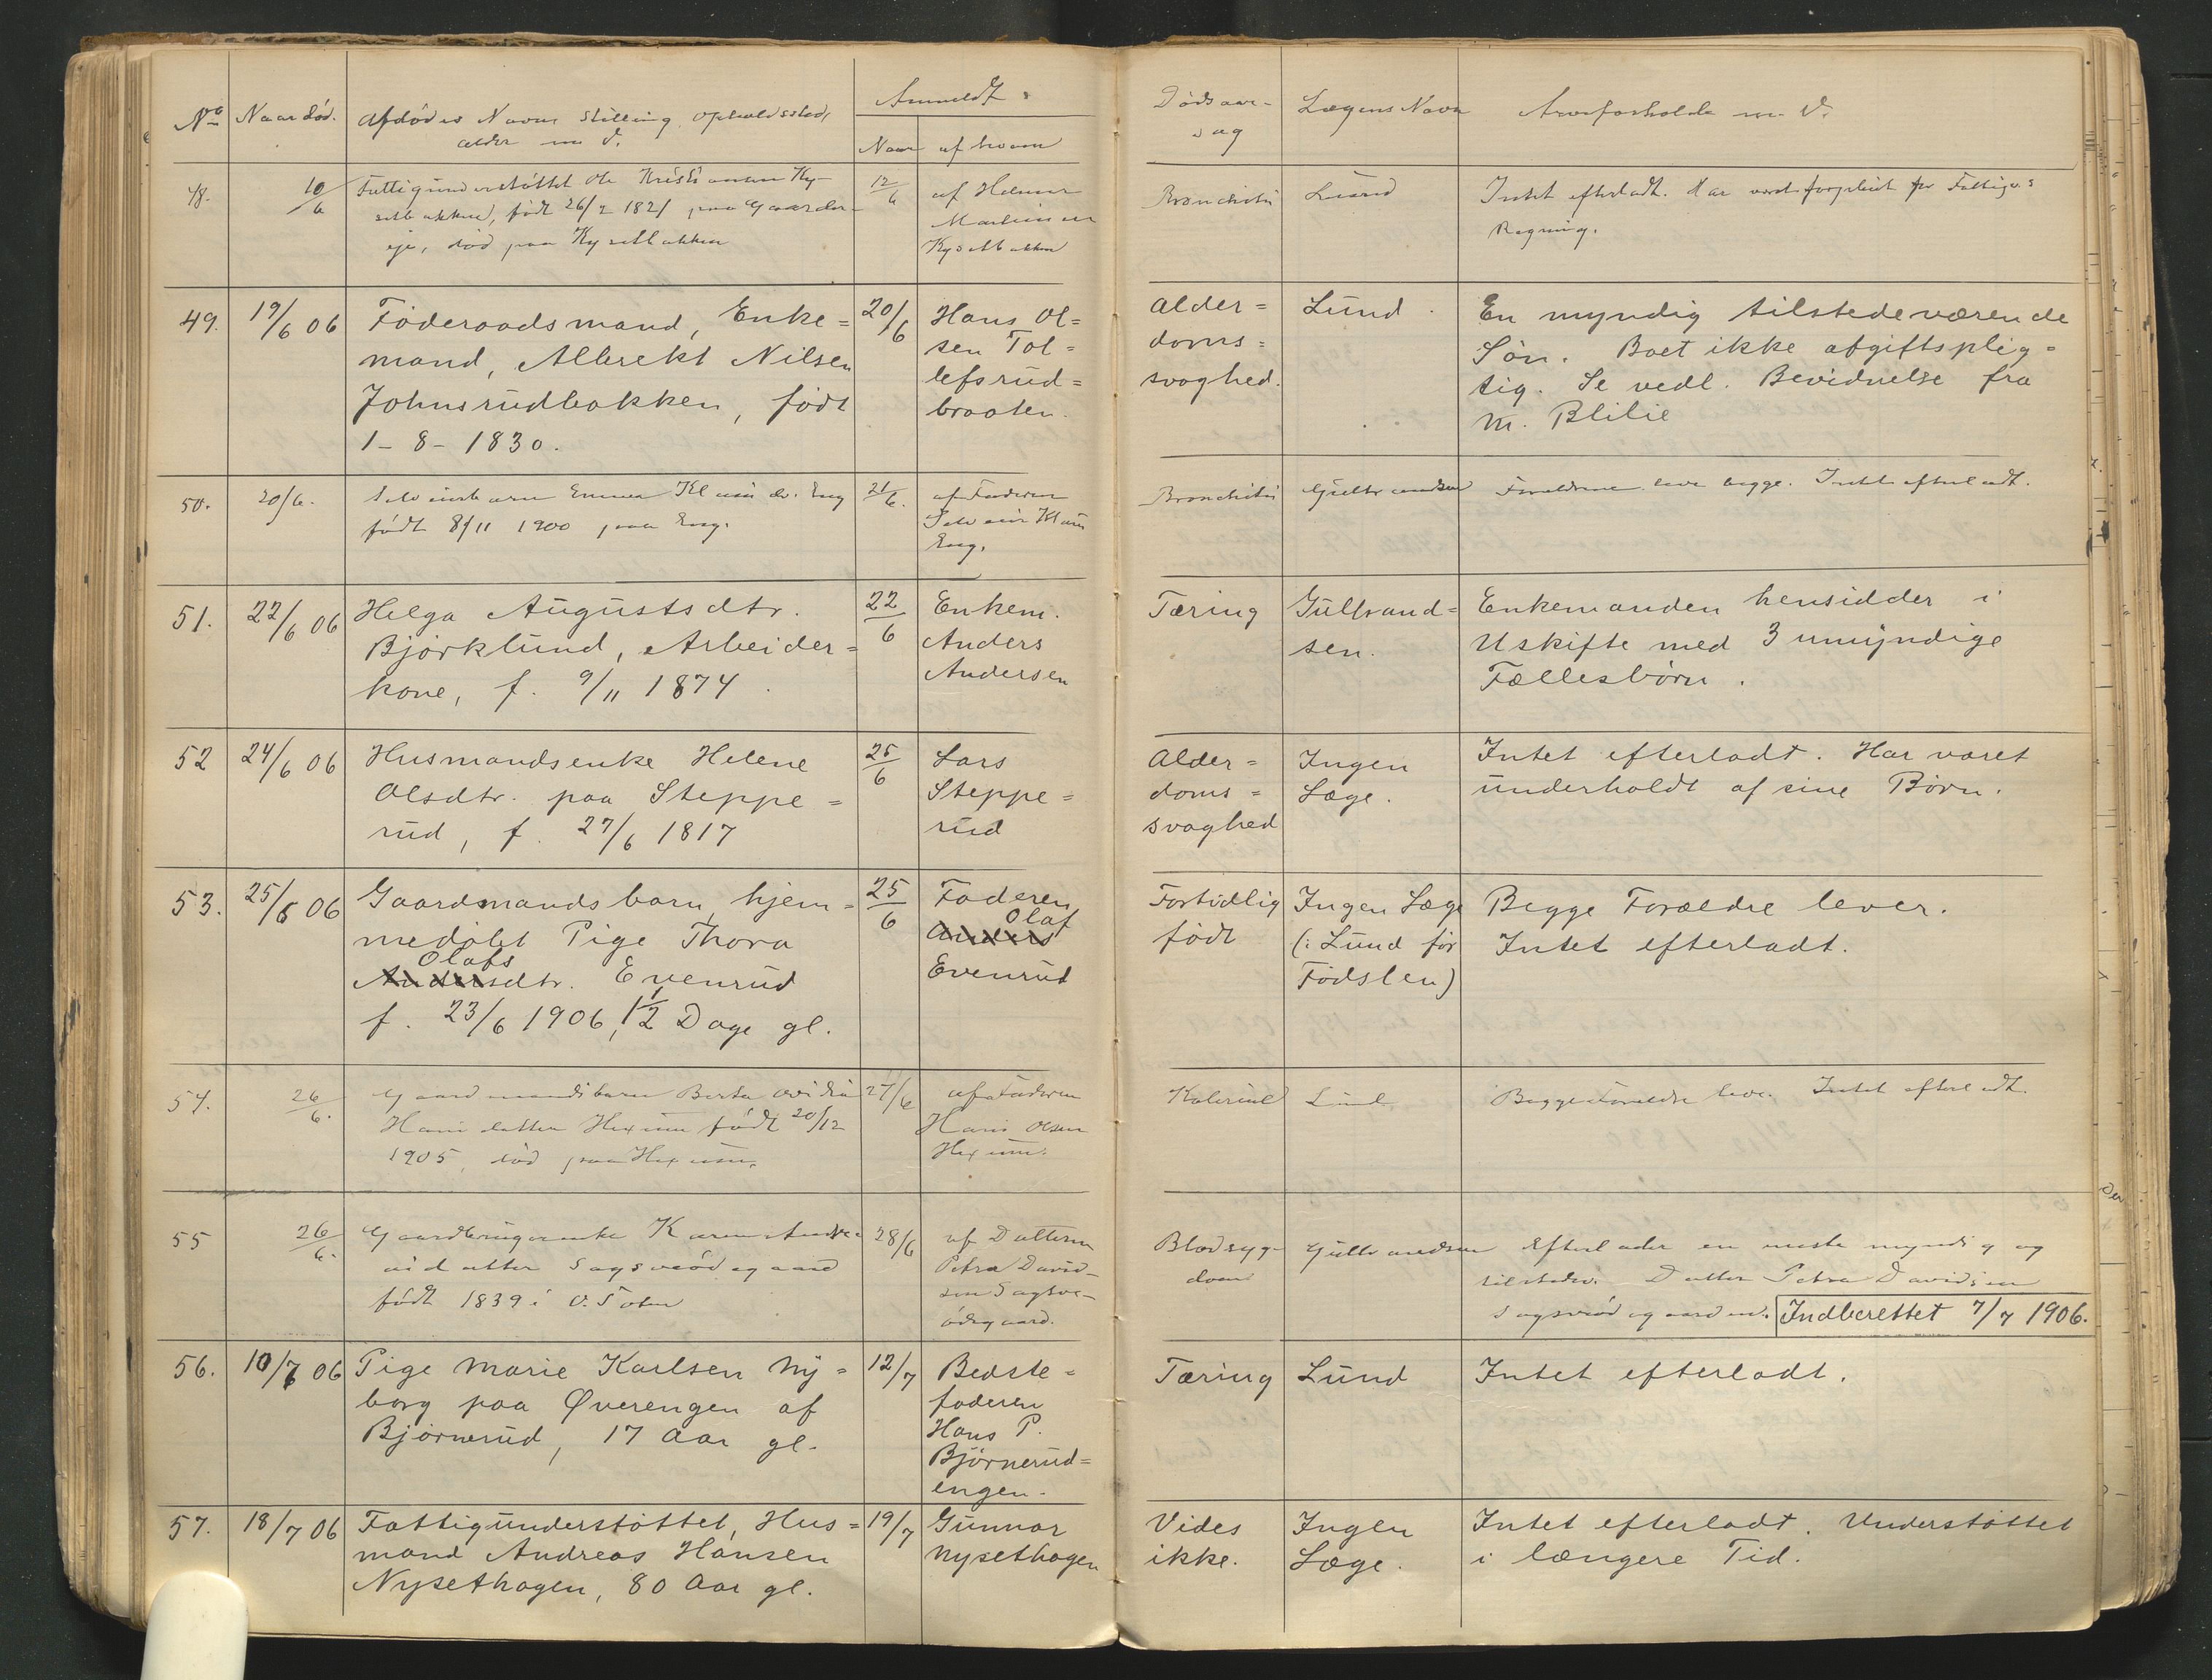 No Naar död. Afdödes Navn Stilling, Opholdssted,
alder m. v.
Anmeldt
Naar af hvem
Dødsaar-
sag
Lægens Navn
Arveforholde m. v.
48. 10/6 Fattigunderstöttet Ole Kristiansen Ky-
setbakken, födt 26/2 1821 paa Gaarder-
eje, död paa Kysetbakken
12/6 af Helmer
Martinsen
Kysetbakken
Bronchitis Lund Intet efterladt. Har været forpleiet for Fattigv.s
Regning.
49. 19/6 06 Föderaadsmand, Enke=
mand, Albrekt Nilsen
Johnsrudbakken, födt
1-8-1830.
20/6 Hans Ol=
sen Tol=
lefsrud=
braaten.
Alder=
doms=
svaghed.
Lund. En myndig tilstedeværende
Sön. Boet ikke afgiftsplig=
tig. Se vedl. Bevidnelse fra
M. Blilie
50. 20/6. Selveierbarn Emma Klausdr. Eng
født 8/11 1900 paa Eng.
21/6. af Faderen
Selveier Klaus
Eng.
Bronchitis Gulbrandsen Forældrene leve begge. Intet efterladt.
51. 22/6 06 Helga Augustsdtr.
Bjørklund, Arbeider=
kone, f. 9/11 1874.
22/6 Enkem.
Anders
Andersen
Tæring Gulbrand=
sen.
Enkemanden hensidder i
Uskifte med 3 umyndige
Fællesbörn.
52 24/6 06 Husmandsenke Helene
Olsdtr. paa Steppe=
rud, f. 27/6 1817
25/6 Lars
Steppe=
rud
Alder=
doms=
svaghed
Ingen
Læge.
Intet efterladt. Har været
underholdt af sine Börn.
53. 25/6 06 Gaardmandsbarn, hjem=
medöbt Pige Thora
Olafs
Andersdtr. Evenrud
f. 23/6 1906, 1 1/2 Dage gl.
25/6 Faderen
Olaf
Anders
Evenrud
Fortidlig
födt
Ingen Læge
(: Lund för
Födslen)
Begge Forældre lever.
Intet efterladt.
54. 26/6. Gaardmandsbarn Berta
Hansdatter Hexum födt 20/12
1905, död paa Hexum.
27/6 af Faderen
Hans Olsen
Hexum.
Kolerine Lund Begge Forældre leve. Intet efterladt.
55 26/6. Gaardbrugerenke Karen Andrea
datter Sagsveödegaard
födt 1839 i V. Toten
28/6 af Datteren
Petra David-
sen Sagsve-
ödegaard.
Blodsyg-
dom
Gulbrandsen Efterlader en eneste myndig og
tilstedev. Datter Petra Davidsen
Sagsveödegaarden. Indberettet 7/7 1906.
56. 10/7 06 Pige Marie Karlsen Ny=
borg paa Øverengen af
Bjørnerud, 17 Aar gl.
12/7 Bedste=
faderen
Hans P.
Björnerud=
engen.
Tæring Lund Intet efterladt.
57. 18/7 06 Fattigunderstöttet, Hus=
mand Andreas Hansen
Nysethagen, 80 Aar gl.
19/7 Gunnar
Nysethagen
Vides
ikke.
Ingen
Læge.
Intet efterladt. Understöttet
i længere Tid.